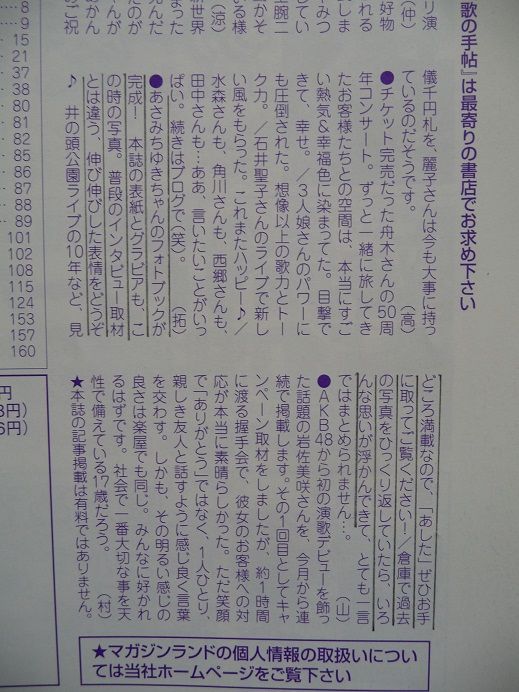 歌の手帖』は最寄りの書店でお求め下さい
儀千円札を、麗子さんは今も大事に持っ
ているのだそうです。(高)
●チケット完売だった舟木さんの50周
年コンサート。ずっと一緒に旅してき
たお客様たちとの空間は、本当にすご
い熱気&幸福色に染まってた。目撃で
きて、幸せ。/3人娘さんのパワーに
も圧倒された。想像以上の歌力とトー
ク力。/石井聖子さんのライブで新し
い風をもらった。これまたハッピー♪/
水森さんも、角川さんも、西郷さんも、
田中さんも…ああ、言いたいことがいっ
ぱい。続きはブログで(笑)(拓)
●あさみちゆきちゃんのフォトブックが
完成!本誌の表紙とグラビアも、こ
の時の写真。普段のインタビュー取材
とは違う、伸び伸びした表情をどうぞ
♪井の頭公園ライブの10年など、見
どころ満載なので、「あした」ぜひお手
に取ってご覧ください!/倉庫で過去
の写真をひっくり返していたら、いろ
んな思いが浮かんできて、とても一言
ではまとめられません…。(山)
●AKB48から初の演歌デビューを飾っ
た話題の岩佐美咲さんを、今月から連
続で掲載します。その1回目としてキャ
ンペーン取材をしましたが、約1時間
に渡る握手会で、彼女のお客様への対
応が本当に素晴らしかった。ただ笑顔
で「ありがとう」ではなく、1人ひとり、
親しき友人と話すように感じ良く言葉
を交わす。しかも、その明るい感じの
良さは楽屋でも同じ。みんなに好かれ
るはずです。社会で一番大切な事を天
性で備えている17歳だろう。(村)
★本誌の記事掲載は有料ではありません。
★マガジンランドの個人情報の取扱いについ
ては当社ホームページをご覧下さい
8
9
15
21
37
38
80
32
76
78
86
88
89
101
102
108
115
124
153
157
160
円
8円)
6円)